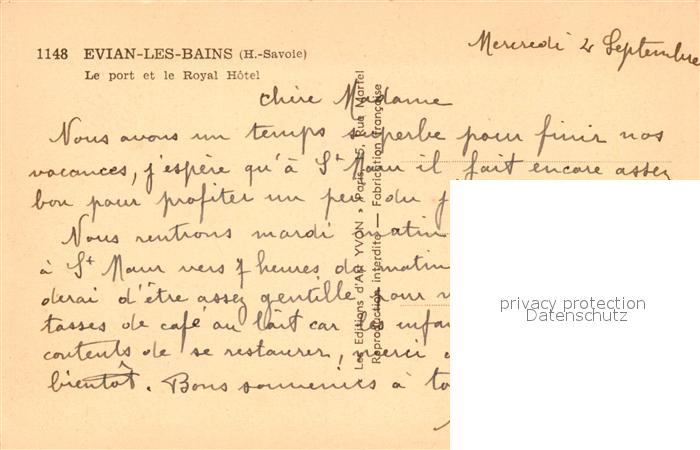 1148 EVIAN-LES-BAINS (H.-Savoie)
Le port et le Royal Hôtel
Mercredi 2 Septembre
Chère Madame
Nous avons un temps superbe pour finir nos
vacances, j'espère qu'à St Maur il fait encore assez
bon pour profiter un peu du
Nous rentrons mardi matin
à St Maur vers 7 heures du matin
derai d'être assez gentille pour
tasses de café au lait car les enfan
contents de se restaurer, merci
bientôt. Bons souvenirs à to
Les Editions d'Art YVON » Paris, 15, Rue Martel
Reproduction interdite — Fabrication française
privacy protection
Datenschutz